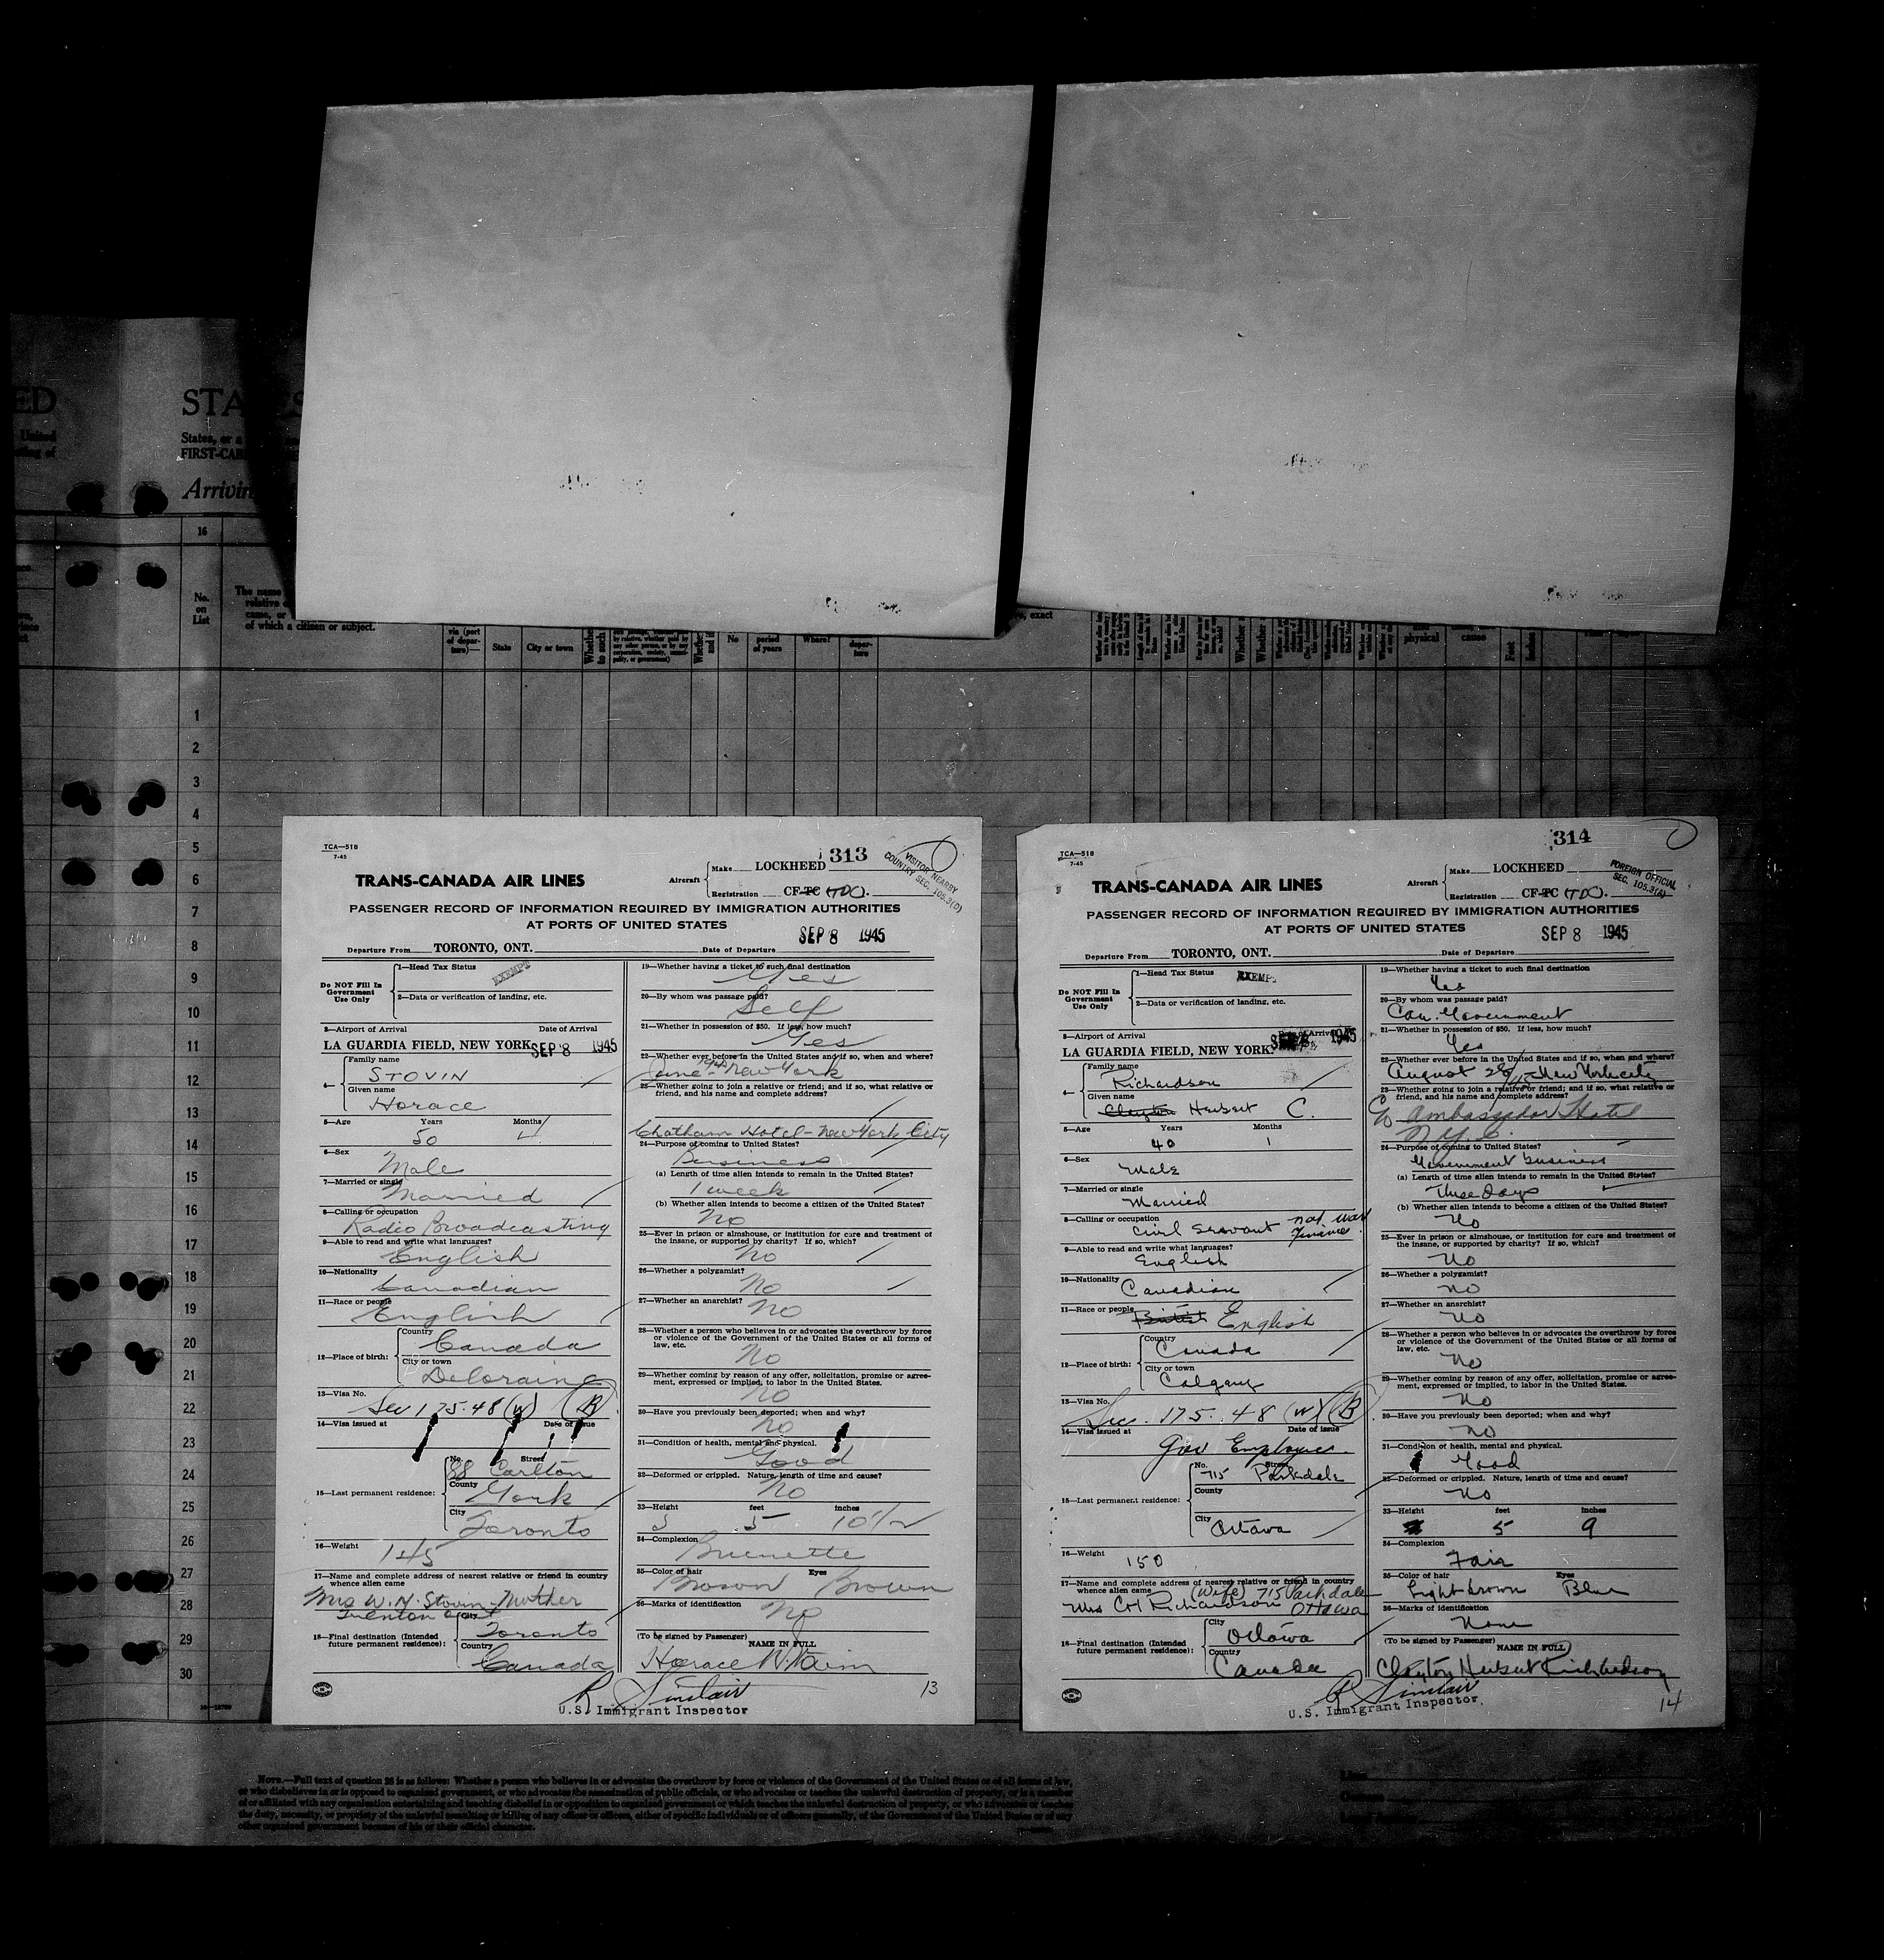 ED
STA
United
States, or a
FIRST-CAB
Arrivin
16
No.
on
List
The name
relative
came, or
of which a citizen or subject.
via (port
of depar-
ture)—
State
City or town
No
period
of years
Where?
depar-
ture
exact
physical
cause
Feet
Inches
1
2
3
4
5
6
7
8
9
10
11
12
13
14
15
16
17
18
19
20
21
22
23
24
25
26
27
28
29
30
TCA—518
7-45
313
VISITOR NEARBY
COUNTRY SEC. 105.3(C)
TRANS-CANADA AIR LINES
Aircraft
Make LOCKHEED
Registration CF-TC TDC.
PASSENGER RECORD OF INFORMATION REQUIRED BY IMMIGRATION AUTHORITIES
AT PORTS OF UNITED STATES
Departure From TORONTO, ONT. Date of Departure SEP 8 1945
Do NOT Fill In
Government
Use Only
1—Head Tax Status EXEMPT
2—Data or verification of landing, etc.
3—Airport of Arrival Date of Arrival
LA GUARDIA FIELD, NEW YORK SEP 8 1945
4—
Family name
STOVIN
Given name
Horace
5—Age Years Months
50 4
6—Sex
Male
7—Married or single
Married
8—Calling or occupation
Radio Broadcasting
9—Able to read and write what languages?
English
10—Nationality
Canadian
11—Race or people
English
12—Place of birth:
Country
Canada
City or town
Deloraine
13—Visa No.
Sec 175.48 (W) (B)
14—Visa issued at Date of issue
15—Last permanent residence:
No. Street
88 Carlton
County
York
City
Toronto
16—Weight
145
17—Name and complete address of nearest relative or friend in country
whence alien came
Mrs W. H. Stovin - Mother
Trenton Ont
18—Final destination (Intended
future permanent residence):
City
Toronto
Country
Canada
19—Whether having a ticket to such final destination
Yes
20—By whom was passage paid?
Self
21—Whether in possession of $50. If less, how much?
Yes
22—Whether ever before in the United States and if so, when and where?
June 1945 New York
23—Whether going to join a relative or friend; and if so, what relative or
friend, and his name and complete address?
Chatham Hotel - New York City
24—Purpose of coming to United States?
Business
(a) Length of time alien intends to remain in the United States?
1 week
(b) Whether alien intends to become a citizen of the United States?
No
25—Ever in prison or almshouse, or institution for cure and treatment of
the insane, or supported by charity? If so, which?
No
26—Whether a polygamist?
No
27—Whether an anarchist?
No
28—Whether a person who believes in or advocates the overthrow by force
or violence of the Government of the United States or all forms of
law, etc.
No
29—Whether coming by reason of any offer, solicitation, promise or agree-
ment, expressed or implied, to labor in the United States.
No
30—Have you previously been deported; when and why?
No
31—Condition of health, mental and physical.
Good
32—Deformed or crippled. Nature, length of time and cause?
No
33—Height feet inches
5 5 10 1/2
34—Complexion
Brunette
35—Color of hair Eyes
Brown Brown
36—Marks of identification
No
(To be signed by Passenger) NAME IN FULL
Horace N. Stovin
R Sinclair
U.S. Immigrant Inspector
13
TCA—518
7-45
314
FOREIGN OFFICIAL
SEC. 105.3(A)
TRANS-CANADA AIR LINES
Aircraft
Make LOCKHEED
Registration CF-TC TDC.
PASSENGER RECORD OF INFORMATION REQUIRED BY IMMIGRATION AUTHORITIES
AT PORTS OF UNITED STATES
Departure From TORONTO, ONT. Date of Departure SEP 8 1945
Do NOT Fill In
Government
Use Only
1—Head Tax Status EXEMP
2—Data or verification of landing, etc.
3—Airport of Arrival Date of Arrival
LA GUARDIA FIELD, NEW YORK. SEP 8 1945
4—
Family name
Richardson
Given name
Clayton Herbert C.
5—Age Years Months
40 1
6—Sex
Male
7—Married or single
Married
8—Calling or occupation
Civil Servant nat. war
finance
9—Able to read and write what languages?
English
10—Nationality
Canadian
11—Race or people
British English
12—Place of birth:
Country
Canada
City or town
Calgary
13—Visa No.
Sec. 175.48 (W) (B)
14—Visa issued at Date of issue
Gov Employee.
15—Last permanent residence:
No. Street
715 Parkdale
County
City
Ottawa
16—Weight
150
17—Name and complete address of nearest relative or friend in country
whence alien came (Wife) 715 Parkdale
Mrs CH Richardson Ottawa
18—Final destination (Intended
future permanent residence):
City
Ottawa
Country
Canada
19—Whether having a ticket to such final destination
Yes
20—By whom was passage paid?
Can. Government
21—Whether in possession of $50. If less, how much?
Yes
22—Whether ever before in the United States and if so, when and where?
August 28/45 New York city
23—Whether going to join a relative or friend; and if so, what relative or
friend, and his name and complete address?
c/o Ambassador Hotel
N.Y.C.
24—Purpose of coming to United States?
Government business
(a) Length of time alien intends to remain in the United States?
Three Days
(b) Whether alien intends to become a citizen of the United States?
No
25—Ever in prison or almshouse, or institution for cure and treatment of
the insane, or supported by charity? If so, which?
No
26—Whether a polygamist?
No
27—Whether an anarchist?
No
28—Whether a person who believes in or advocates the overthrow by force
or violence of the Government of the United States or all forms of
law, etc.
No
29—Whether coming by reason of any offer, solicitation, promise or agree-
ment, expressed or implied, to labor in the United States.
No
30—Have you previously been deported; when and why?
No
31—Condition of health, mental and physical.
Good
32—Deformed or crippled. Nature, length of time and cause?
No
33—Height feet inches
5 9
34—Complexion
Fair
35—Color of hair Eyes
Light brown Blue
36—Marks of identification
None
(To be signed by Passenger) NAME IN FULL
Clayton Herbert Richardson
R Sinclair
U.S. Immigrant Inspector.
14
NOTE.—Full text of question 28 is as follows: Whether a person who believes in or advocates the overthrow by force or violence of the Government of the United States or of all forms of law,
or who disbelieves in or is opposed to organized government, or who advocates the assassination of public officials, or who advocates or teaches the unlawful destruction of property, or is a member
of or affiliated with any organization entertaining and teaching disbelief in or opposition to organized government or which teaches the unlawful destruction of property, or who advocates or teaches
the duty, necessity, or propriety of the unlawful assaulting or killing of any officer or officers, either of specific individuals or of officers generally, of the Government of the United States or of any
other organized government because of his or their official character.